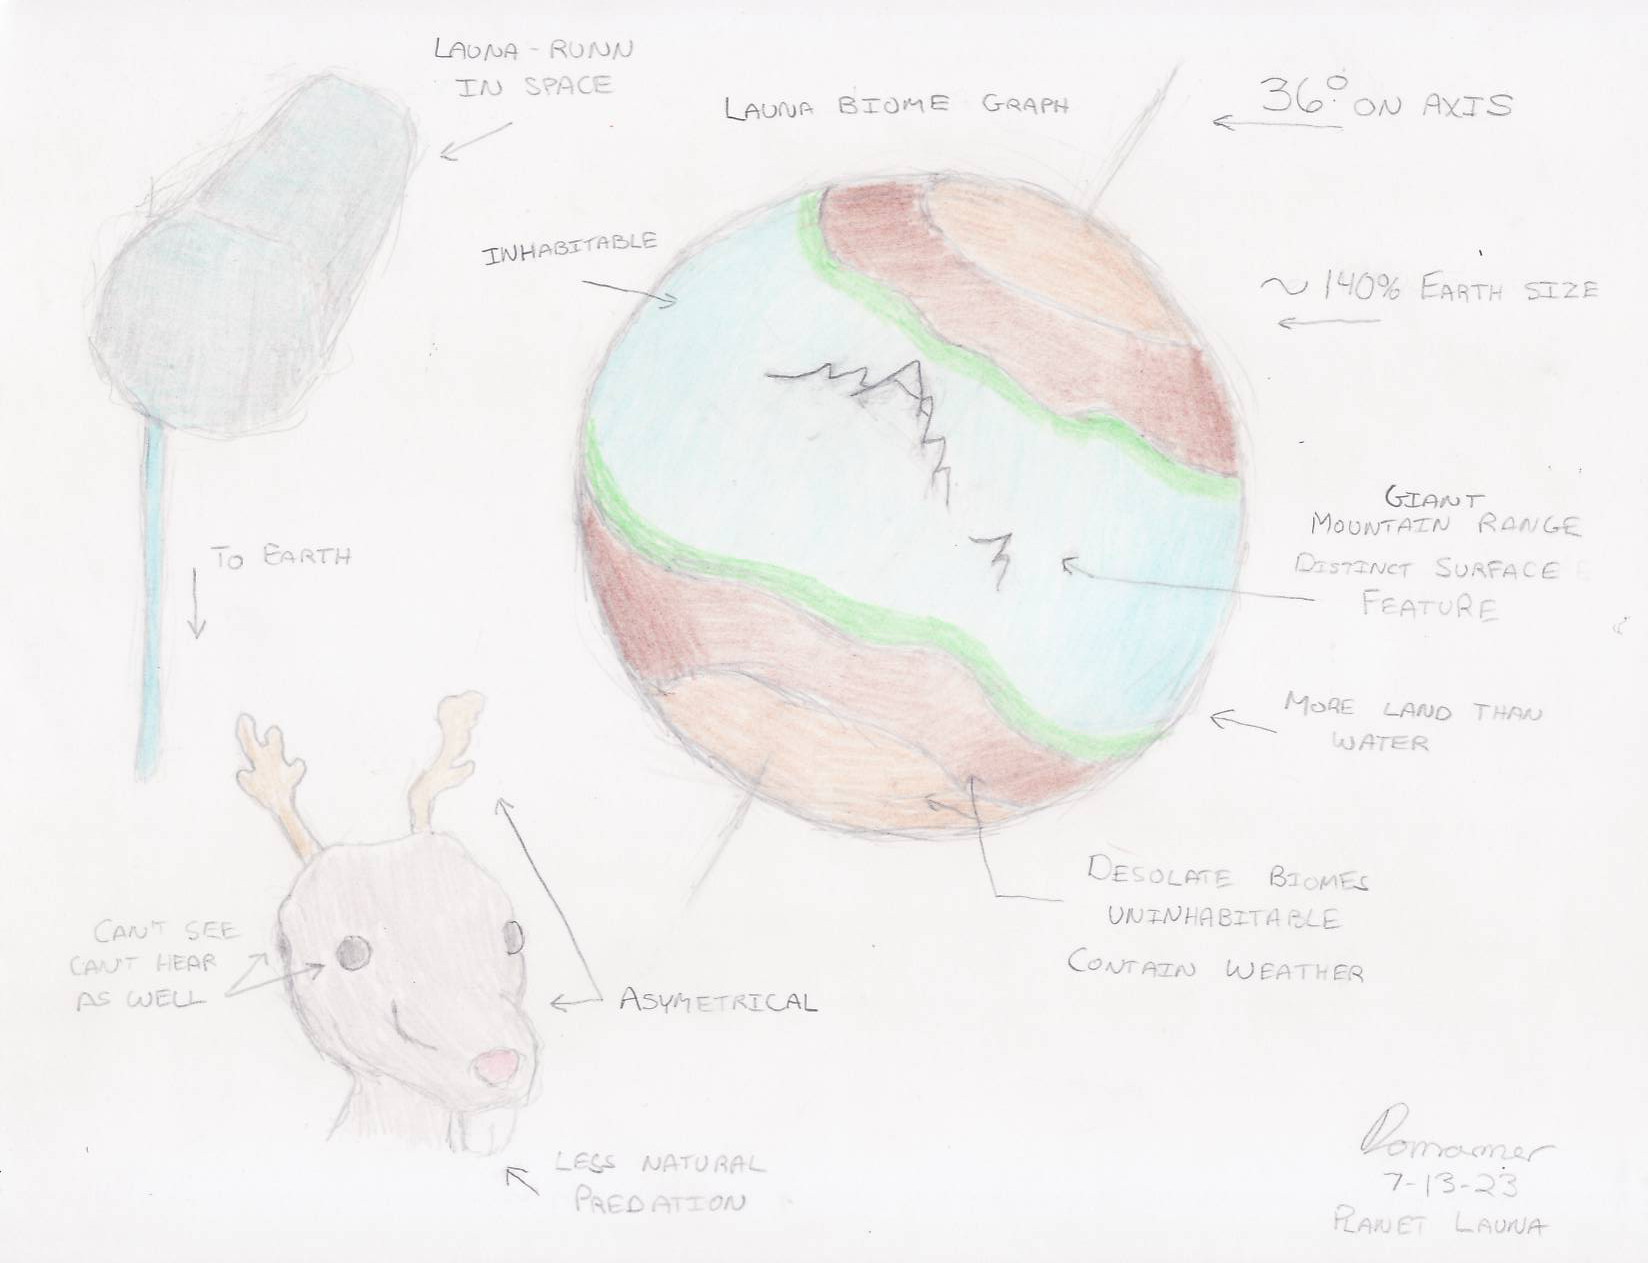 LAUNA-RUNN
IN SPACE
LAUNA BIOME GRAPH
36° ON AXIS
INHABITABLE
~ 140% EARTH SIZE
TO EARTH
GIANT
MOUNTAIN RANGE
DISTINCT SURFACE
FEATURE
MORE LAND THAN
WATER
DESOLATE BIOMES
UNINHABITABLE
CONTAIN WEATHER
CAN'T SEE
CAN'T HEAR
AS WELL
ASYMETRICAL
LESS NATURAL
PREDATION
7-13-23
PLANET LAUNA